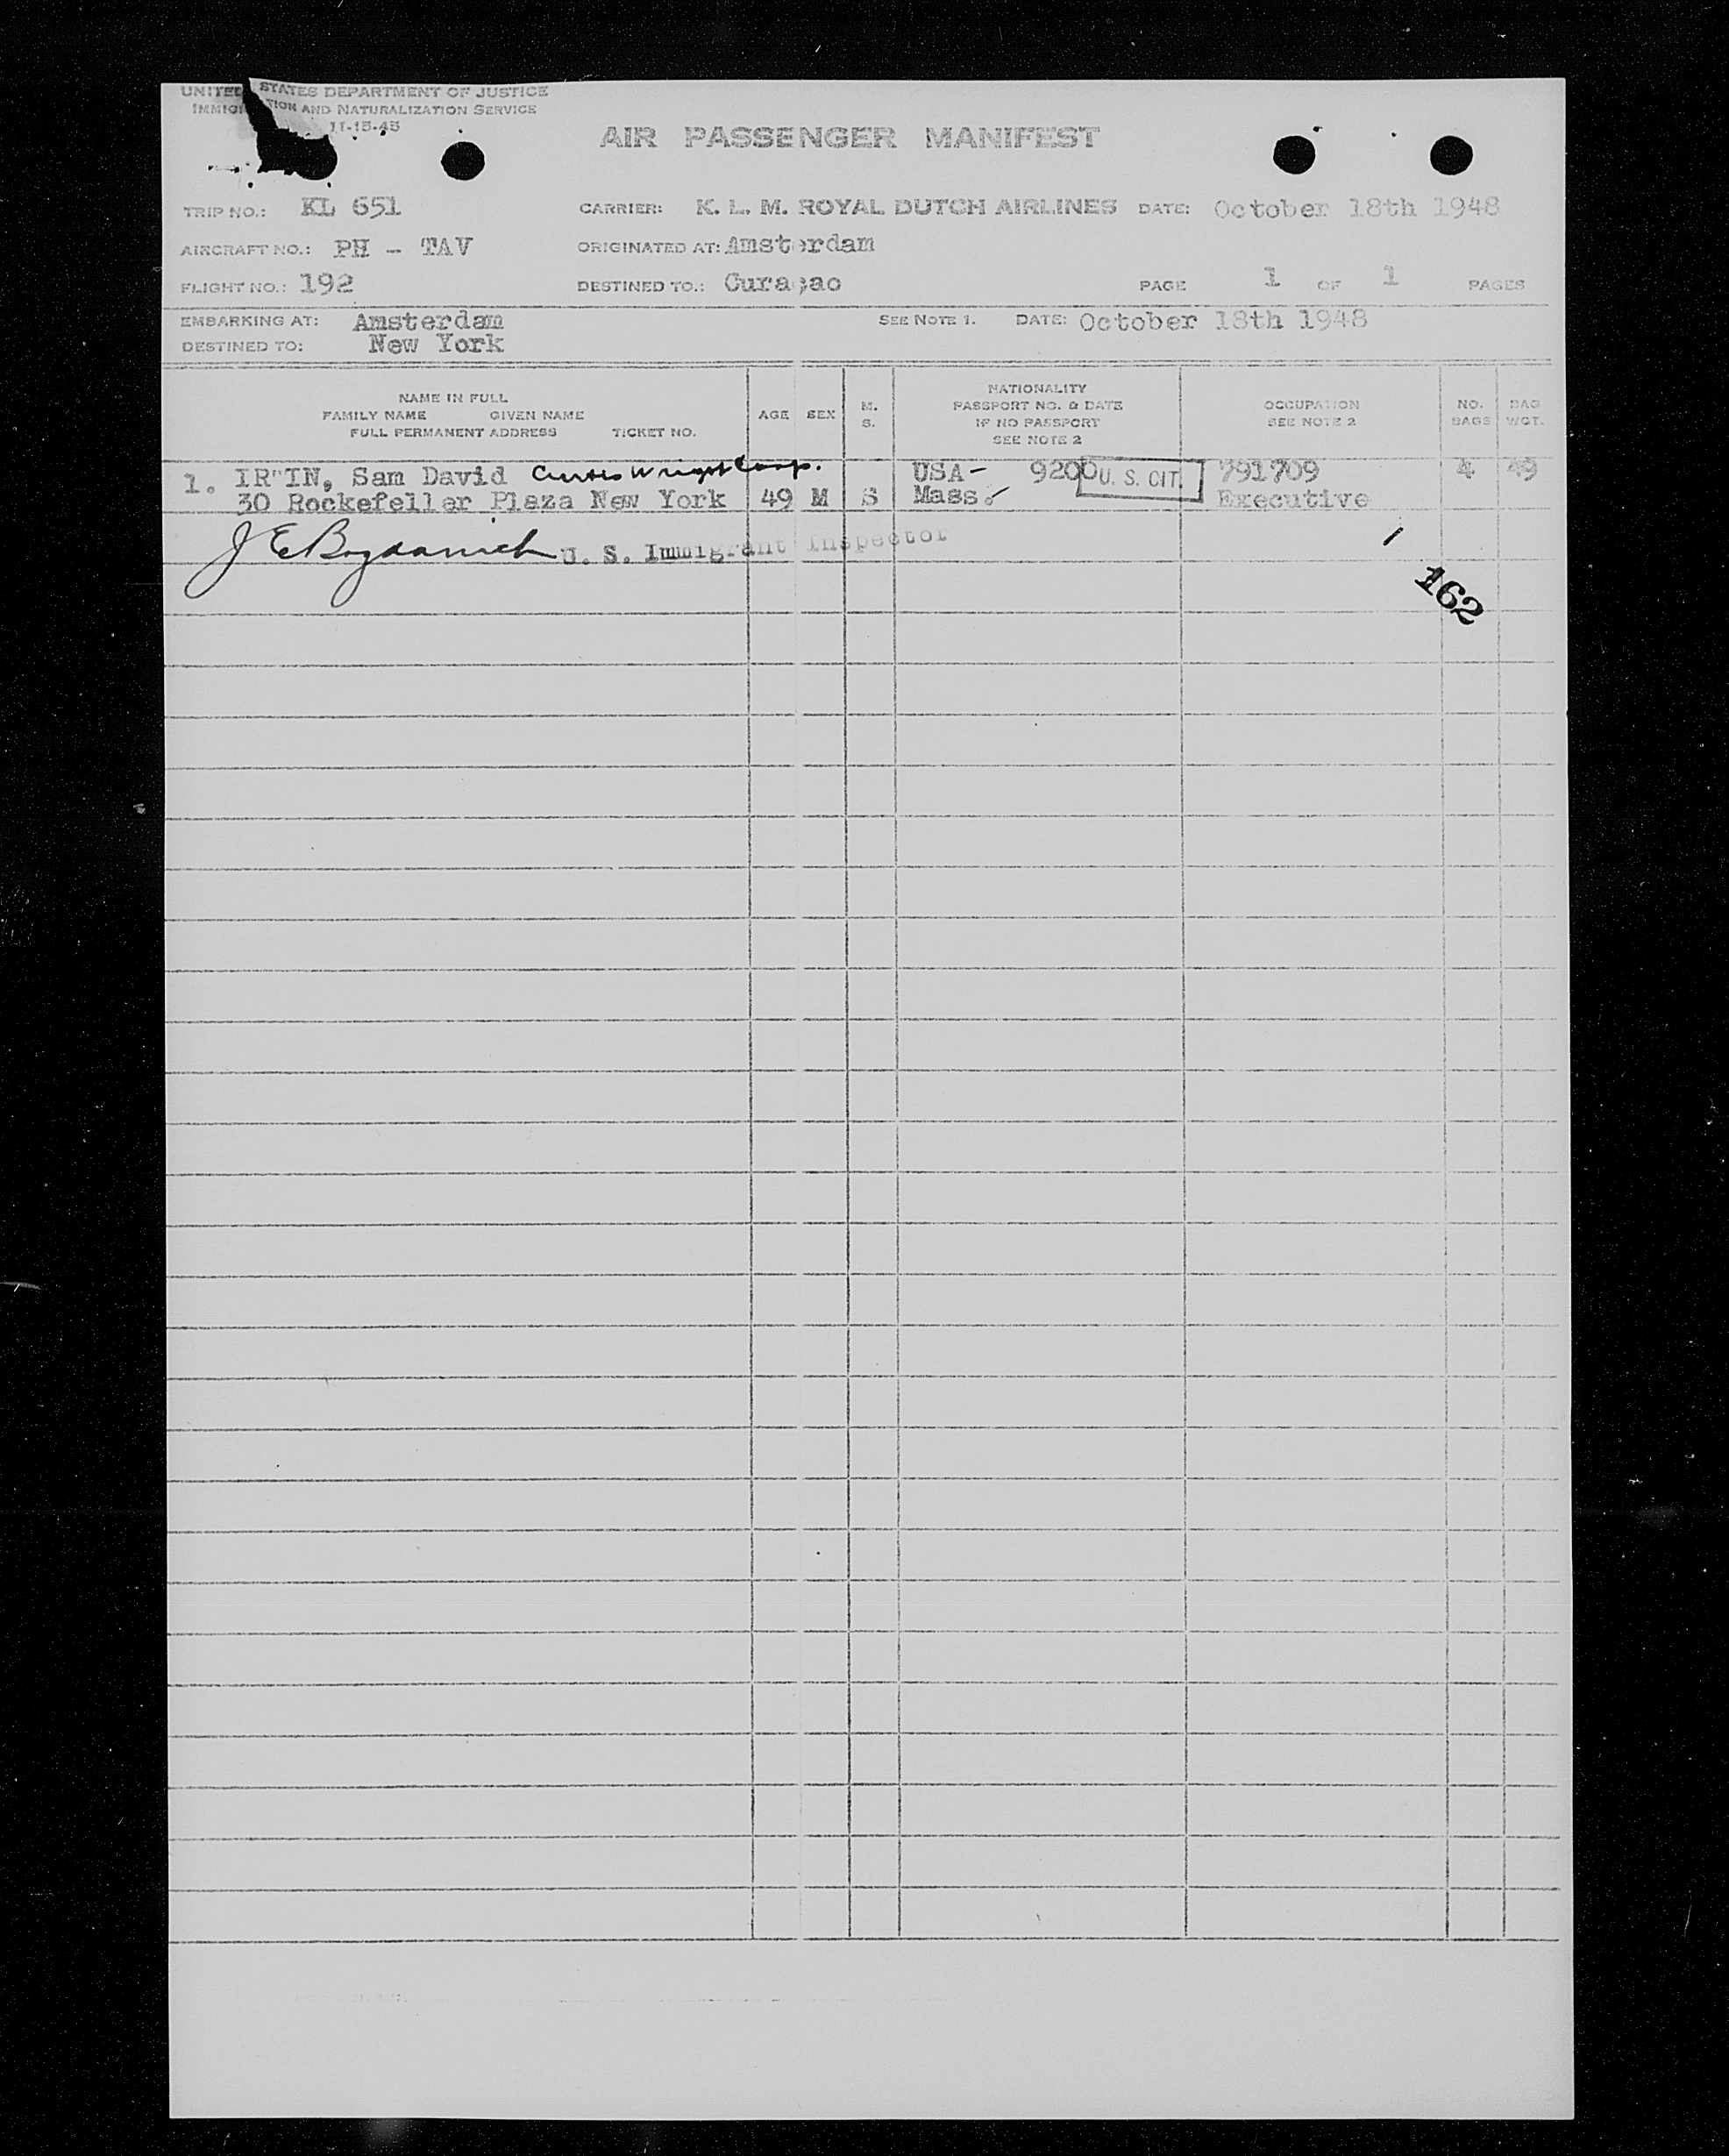 UNITED STATES DEPARTMENT OF JUSTICE
IMMIGRATION AND NATURALIZATION SERVICE
11-15-45
AIR PASSENGER MANIFEST
TRIP NO.: KL 651 CARRIER: K. L. M. ROYAL DUTCH AIRLINES DATE: October 18th 1948
AIRCRAFT NO.: PH - TAV ORIGINATED AT: Amsterdam
FLIGHT NO.: 192 DESTINED TO.: Curaçao PAGE 1 OF 1 PAGES
EMBARKING AT: Amsterdam SEE NOTE 1. DATE: October 18th 1948
DESTINED TO: New York
NAME IN FULL
FAMILY NAME GIVEN NAME
FULL PERMANENT ADDRESS TICKET NO.
AGE SEX
M.
S.
NATIONALITY
PASSPORT NO. & DATE
IF NO PASSPORT
SEE NOTE 2
OCCUPATION
SEE NOTE 2
NO.
BAGS
BAG
WGT.
1. IR"IN, Sam David Curtis Wright Corp. USA- 9200 U. S. CIT. 791709 4 49
30 Rockefeller Plaza New York 49 M S Mass. Executive
J E Bogdanich U. S. Immigrant Inspector
162